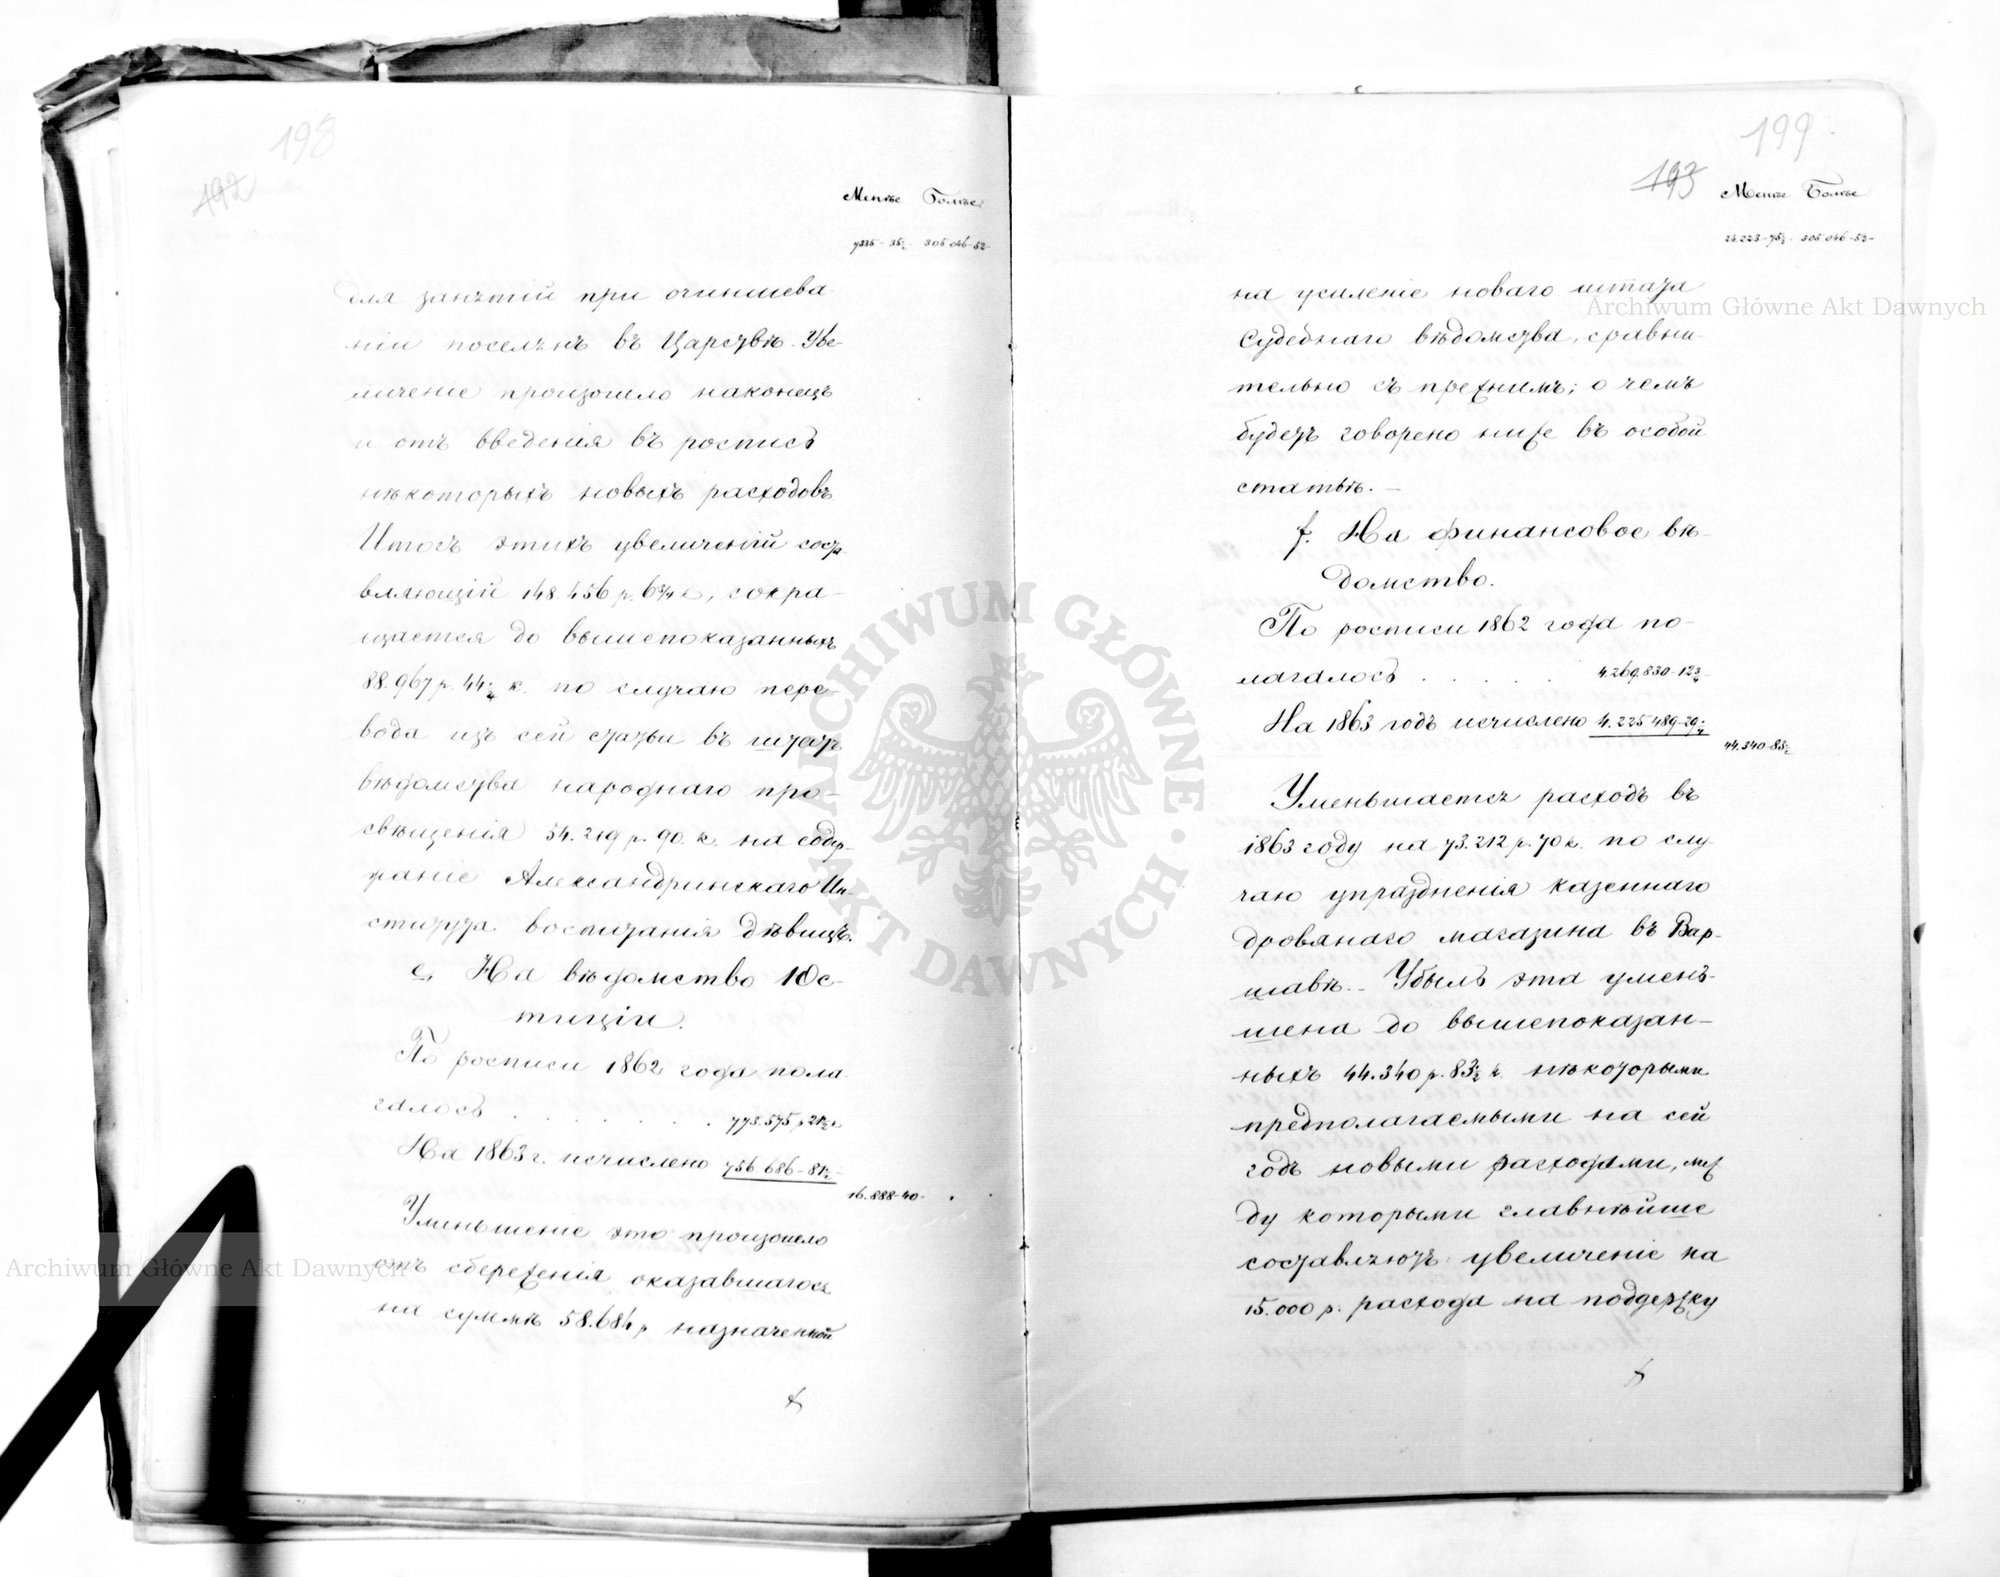 198
192
Менѣе Болѣе
7335-35½ 305.046-52-
для занятій при очиншева-
ніи поселянъ въ Царствѣ. Уве-
личеніе произошло наконецъ
и отъ введенія въ роспись
нѣкоторыхъ новыхъ расходовъ
Итогъ этихъ увеличеній соста
вляющій 148.456 р. 6¾ к, сокра-
щается до вышепоказанныхъ
88.967 р. 44 к. по случаю пере-
вода изъ сей статьи въ штатъ
вѣдомства народнаго про-
свѣщенія 54.219 р. 90 к. на содер-
жаніе Александринскаго Ин
ститута воспитанія дѣвицъ.
e, На вѣдомство Юс-
тиціи.
По росписи 1862 года пола-
галось . . . . . . 773.575 р 21½ к
На 1863 г. исчислено 756 686-81½
16.888-40-
Уменьшеніе это произошло
отъ сбереженія оказавшагося
на суммѣ 58.684 р назначенной
199
193
Менѣе Болѣе
24.223-75½ 305 046-52-
на усиленіе новаго штата
Судебнаго вѣдомства, сравни-
тельно съ прежнимъ; о чемъ
будетъ говорено ниже въ особой
статьѣ. —
f. На финансовое вѣ-
домство.
По росписи 1862 года по-
лагалось . . . . . 4.269.830-12¾
На 1863 годъ исчислено 4.225 489-29
44.340-83½
Уменьшается расходъ въ
1863 году на 73.212 р. 70 к. по слу-
чаю упраздненія казеннаго
дровянаго магазина въ Вар-
шавѣ. - Убыль эта умень-
шена до вышепоказан-
ныхъ 44.340 р. 83½ к. нѣкоторыми
предполагаемыми на сей
годъ новыми расходами, меж
ду которыми главнѣйше
составляютъ: увеличеніе на
15.000 р. расхода на поддержку
Archiwum Główne Akt Dawnych
Archiwum Główne Akt Dawnych
ARCHIWUM GŁÓWNE AKT DAWNYCH